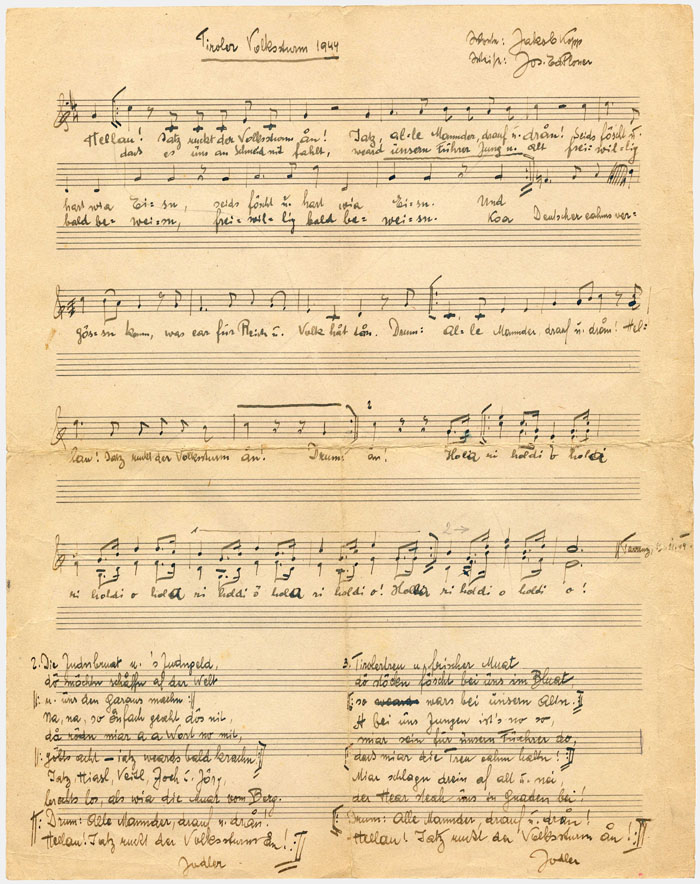 Tiroler Volkssturm 1944
Worte: Jakob Kopp
Weise: Jos. Ed Ploner
Hellau! Iatz ruckt der Volkssturm ån! Iatz, al-le Mannder, drauf u. drån! Seids föscht u.
dass es uns an Schneid nit fahlt, weard unsern Führer Jung u. alt frei-wil-lig
hart wia Ei-sn, seids föscht u. hart wia Ei-sn. Und
bald be-wei-sn, frei-wil-lig bald be-wei-sn. Koa Deutscher eahms ver-
gös-sn kann, was ear für Reich u. Volk håt tån. Drum: al-le Mannder, drauf u. drån! Hel-
lau! Iatz ruckt der Volkssturm ån! Drum: ån! Holla ri holdi o holla
2
ri holdi o holla ri holdi o holla ri holdi o! Holla ri holdi o holdi o!
2→
2. Die Judnbruat u. 's Judngeld,
dö möchtn schåffn af der Welt
u. üns den Garaus machn
Na, na, so oanfach geaht dös nit,
då rödn miar a a Wort no mit,
göbts acht – iatz weards bald krachn
Iatz Hiasl, Veitl, Joch u. Jörg,
löschts los, als wia die Muat vom Berg.
Drum: Alle Mannder, drauf u. drån!
Hellau! Iatz ruckt der Volkssturm ån!
Jodler
3. Tirolertreu u. frischer Muat
dö stöckn föscht bei üns im Bluat,
so wars bei ünsern Altn.
A bei üns Jungen ist's no so,
miar sein für ünsern Füehrer do,
dass miar die Treu eahm haltn!
Miar schlagn drein af all u. nei,
der Hear steah üns in Gnaden bei!
Drum: Alle Mannder, drauf u. drån!
Hellau! Iatz ruckt der Volkssturm ån!
Jodler